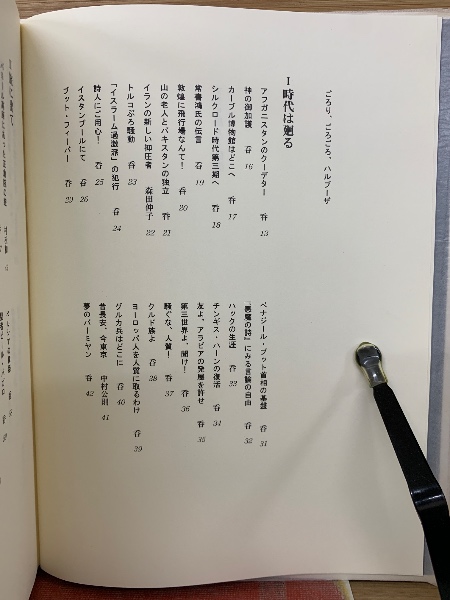 ごろり、ごろごろ、ハルブーザ
I 時代は廻る
アフガニスタンのクーデター 呑 13
神の御加護 呑 16
カーブル博物館はどこへ 呑 17
シルクロード時代第三期へ 呑 18
常書鴻氏の伝言 呑 19
敦煌に飛行場なんて! 呑 20
山の老人とパキスタンの独立 呑 21
イランの新しい抑圧者 森田伸子 22
トルコぶろ騒動 呑 23
「イスラーム過激派」の犯行 呑 24
詩人にご用心! 呑 25
イスタンブールにて 呑 26
ブット・フィーバー 呑 29
ベナジール・ブット首相の基盤 呑 31
『悪魔の詩』にみる言論の自由 呑 32
ハックの生涯 呑 33
チンギス・ハーンの復活 呑 34
友よ、アラビアの発展を許せ 呑 35
第三世界よ、聞け! 呑 36
騒ぐな、人質! 呑 37
クルド族よ 呑 38
ヨーロッパ人を人質に取るわけ 呑 39
グルカ兵はどこに 呑 40
昔長安、今東京 中村公則 41
夢のバーミヤン 呑 42